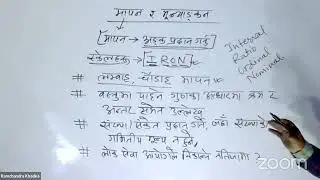 मापन र मूल्याङ्कन
मापन → अङ्क प्रदान गर्नु
स्केलहरू → IRON
Interval
Ratio
Ordinal
Nominal
# लम्बाइ चौडाइ मापन
# वस्तुमा पाईने गुणका आधारमा क्रम र
अन्तर समेत उल्लेख
# संख्या/संकेत प्रदान गर्ने, जहाँ संख्याको
गणितीय मूल्य नहुने
# लोक सेवा आयोगले निकाल्ने नतिजामा ?
Ramchandra Khadka
zoom